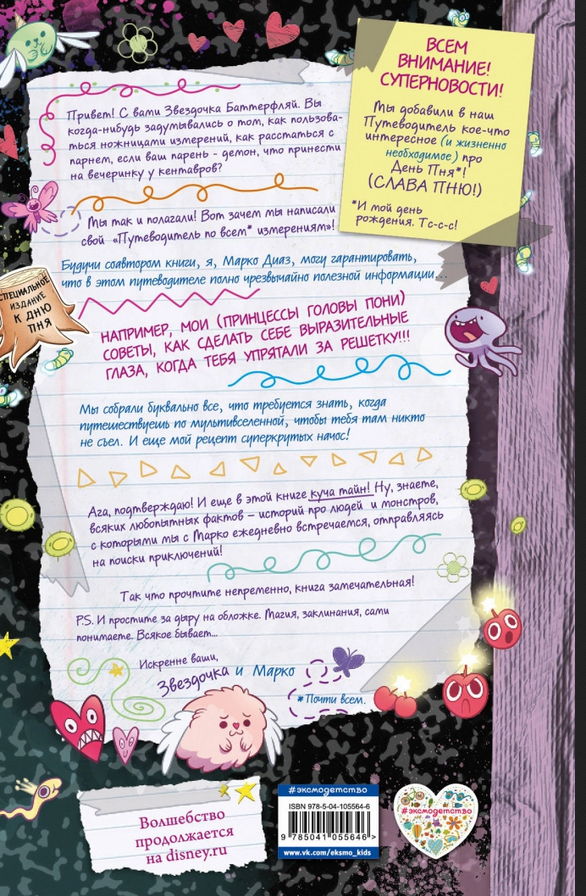 ВСЕМ
ВНИМАНИЕ!
СУПЕРНОВОСТИ!
Мы добавили в наш
Путеводитель кое-что
интересное (и жизненно
необходимое) про
День Пня*!
(СЛАВА ПНЮ!)
*И мой день
рождения. Тс-с-с!
Привет! С вами Звездочка Баттерфляй. Вы
когда-нибудь задумывались о том, как пользова-
ться ножницами измерений, как расстаться с
парнем, если ваш парень - демон, что принести
на вечеринку у кентавров?
Мы так и полагали! Вот зачем мы написали
свой «Путеводитель по всем* измерениям»!
Будучи соавтором книги, я, Марко Диаз, могу гарантировать,
что в этом путеводителе полно чрезвычайно полезной информации...
СПЕЦИАЛЬНОЕ
ИЗДАНИЕ
К ДНЮ
ПНЯ
НАПРИМЕР, МОИ (ПРИНЦЕССЫ ГОЛОВЫ ПОНИ)
СОВЕТЫ, КАК СДЕЛАТЬ СЕБЕ ВЫРАЗИТЕЛЬНЫЕ
ГЛАЗА, КОГДА ТЕБЯ УПРЯТАЛИ ЗА РЕШЕТКУ!!!
Мы собрали буквально все, что требуется знать, когда
путешествуешь по мультивселенной, чтобы тебя там никто
не съел. И еще мой рецепт суперкрутых начос!
Ага, подтверждаю! И еще в этой книге куча тайн! Ну, знаете,
всяких любопытных фактов – историй про людей и монстров,
с которыми мы с Марко ежедневно встречаемся, отправляясь
на поиски приключений!
Так что прочтите непременно, книга замечательная!
P.S. И простите за дыру на обложке. Магия, заклинания, сами
понимаете. Всякое бывает...
Искренне ваши,
Звездочка и Марко
* Почти всем.
Волшебство
продолжается
на disney.ru
#эксмодетство
ISBN 978-5-04-105564-6
9 785041 055646 >
www.vk.com/eksmo_kids
#эксмодетство